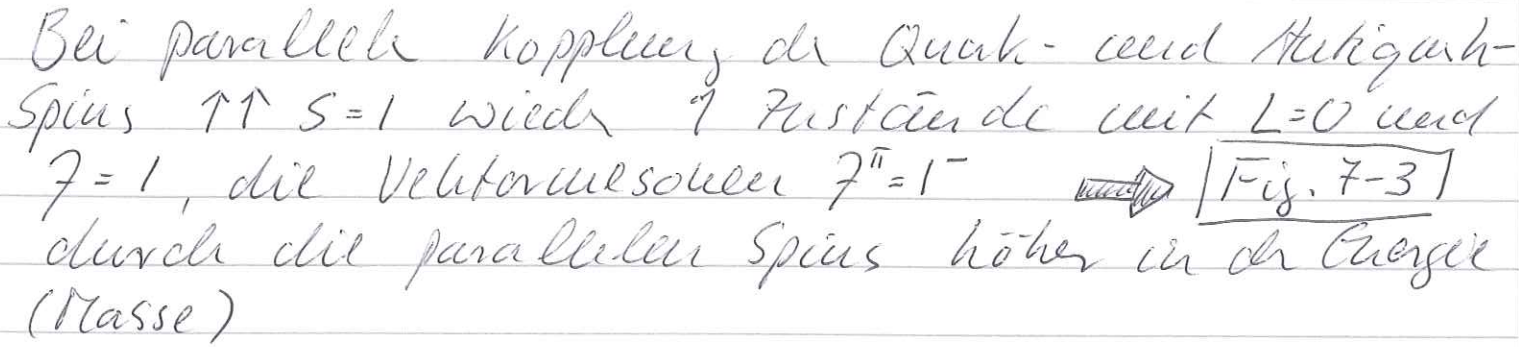 Bei paralleler Kopplung der Quark- und Antiquark-
Spins ↑↑ S=1 wieder 9 Zustände mit L=0 und
J=1, die Vektormesonen J^π=1^- ⇒ Fig. 7-3
durch die parallelen Spins höher in der Energie
(Masse)